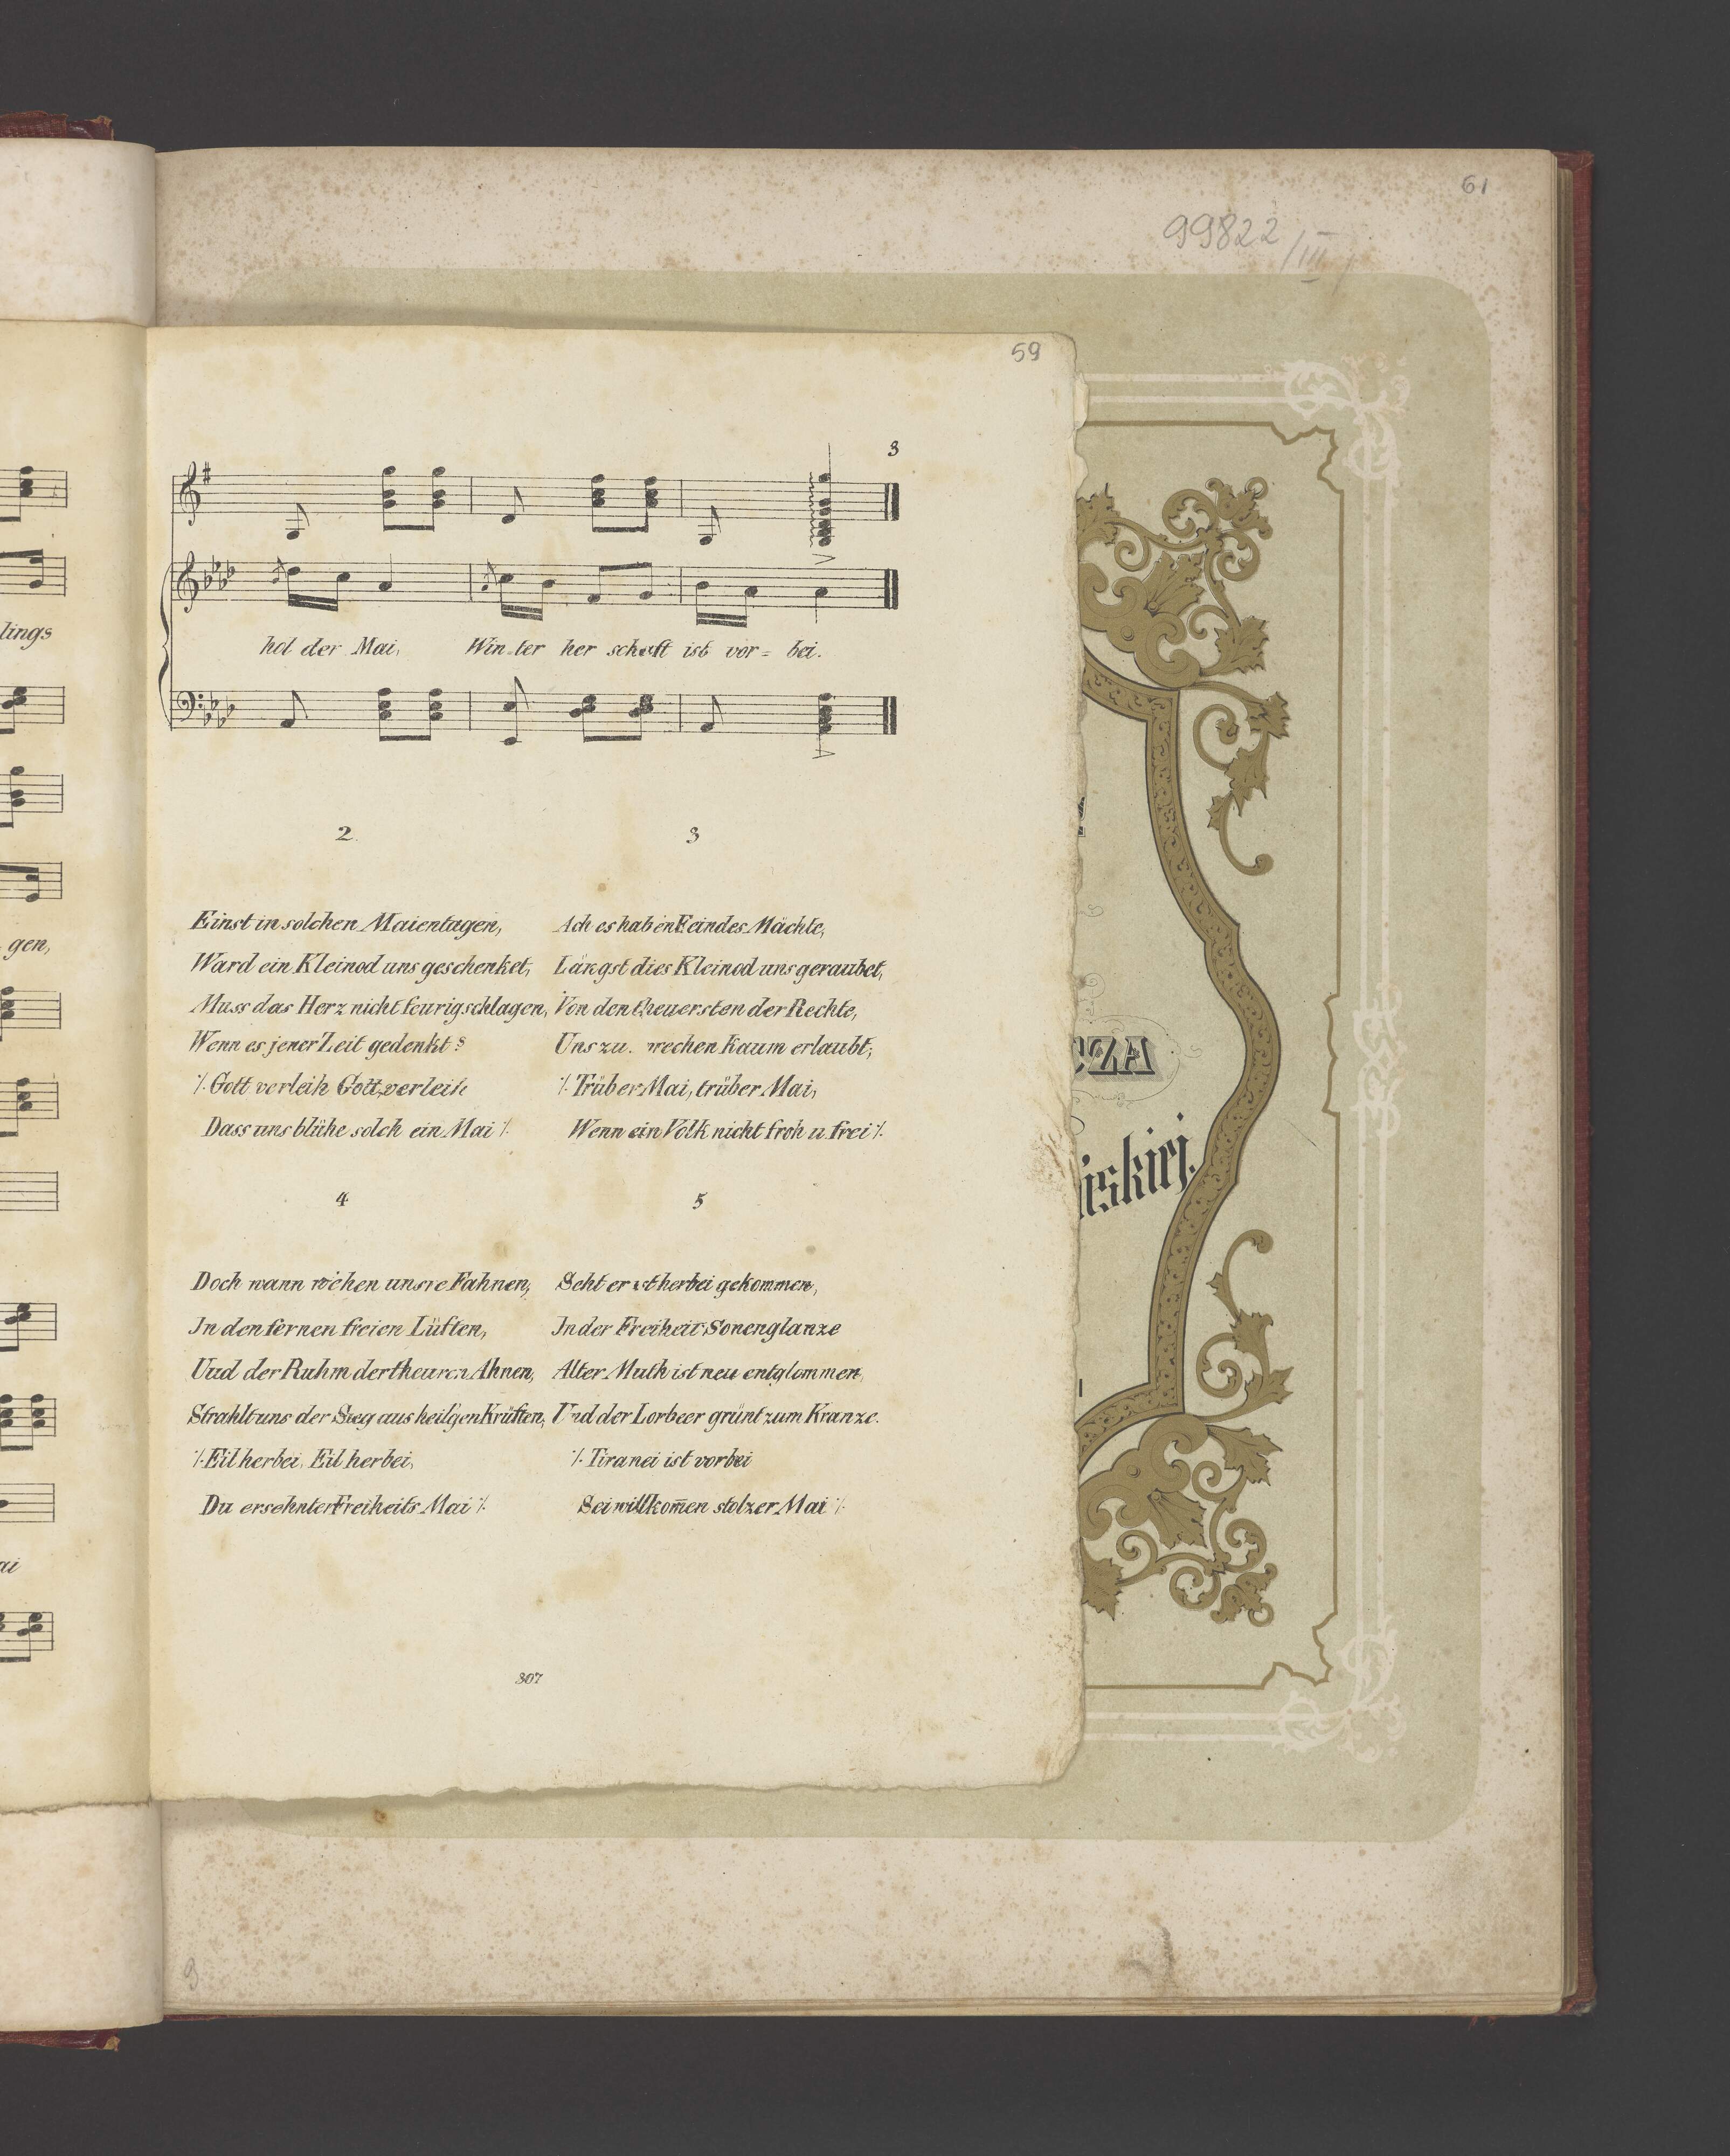 61
99822/III
59
3
lings
hol der Mai, Win=ter her schaft ist vor= bei.
gen,
2.
Einst in solchen Maientagen,
Ward ein Kleinod uns geschenket,
Muss das Herz nicht feurig schlagen,
Wenn es jener Zeit gedenkt?
·/. Gott verleih Gott, verleih
Dass uns blühe solch ein Mai ·/.
3
Ach es haben Feindes Mächte,
Längst dies Kleinod uns geraubet,
Von den theuersten der Rechte,
Uns zu. wechen kaum erlaubt;
·/. Trüber Mai, trüber Mai,
Wenn ein Volk nicht froh u frei ·/.
4
Doch wann wehen unsre Fahnen,
In den fernen freien Lüften,
Uud der Ruhm der theuren Ahnen,
Strahlt uns der Sieg aus heil'gen Krüften,
·/. Eil herbei, Eil herbei,
Du ersehnter Freiheits Mai ·/.
5
Seht er ist herbei gekommen,
In der Freiheit Sonenglanze
Alter Muth ist neu entglommen,
Und der Lorbeer grünt zum Kranze.
·/. Tiranei ist vorbei
Sei willkom̅en stolzer Mai ·/.
ai
307
CZA
iskiej.
9